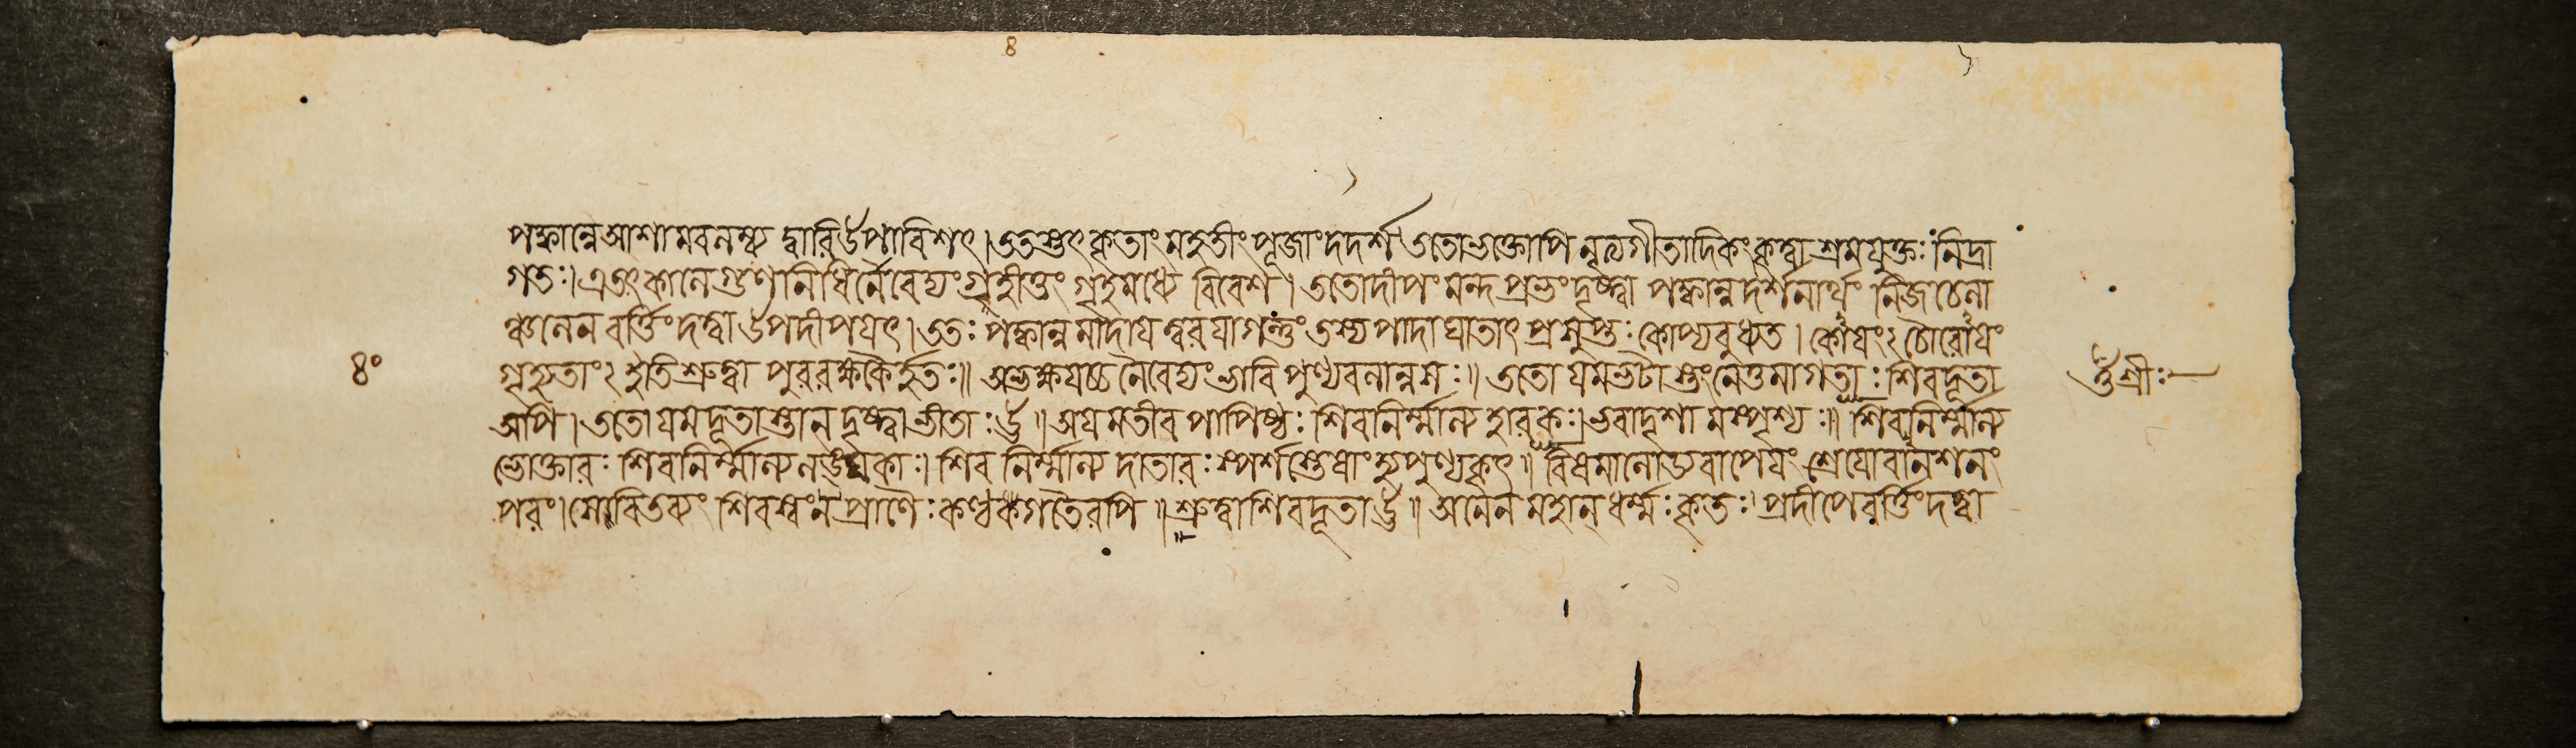 ৪
পক্বান্নে আশামবলম্ব্য দ্বারি উপাবিশৎ।ততস্তৎকৃতাং মহতীং পূজাং দদর্শ ততো ভক্তোপি নৃত্যগীতাদিকং কৃত্বা শ্রমযুক্তঃ নিদ্রা
গতঃ।এতৎকালে গুণনিধির্নৈবেদ্যং গ্রহীতুং গৃহমধ্যে বিবেশ। ততো দীপং মন্দপ্রভং দৃষ্ট্বা পক্বান্নদর্শনার্থং নিজচেলা
ঞ্চলেন বর্ত্তিং দত্ত্বা উপদীপয়ৎ।ততঃ পক্বান্নমাদায় ত্বরয়াগন্তুং তস্য পাদাঘাতাৎ প্রসুপ্তঃ কোপ্যবুধ্যত। কোয়ং২ চৌরোয়ং
৪০ গৃহ্যতাং২ ইতি শ্রুত্বা পুররক্ষকৈর্হতঃ॥ অভক্ষয়চ্চ নৈবেদ্যং ভাবিপুণ্যবলান্নসঃ॥ ততো যমভটাস্তং নেতুমাগতাঃ শিবদূতা শ্রীঃ
অপি।ততো যমদূতাস্তান্ দৃষ্ট্বা ভীতাঃ ঊ॥ অয়মতীব পাপিষ্ঠঃ শিবনির্ম্মাল্য হারকঃ।ভবাদৃশামস্পৃশ্যঃ॥ শিবনির্ম্মাল্য
ভোক্তারঃ শিবনির্ম্মাল্যলঙ্ঘকাঃ।শিবনির্ম্মাল্যদাতারঃ স্পর্শস্তেষাং হ্যপুণ্যকৃৎ॥ বিষমালোড্য বা পেয়ং শ্রেয়ো বানশনং
পরং।সেবিতব্যং শিবস্বং ন প্রাণৈঃ কণ্ঠগতৈরপি॥ শ্রুত্বা শিবদূতা ঊ॥ অনেন মহান্ ধর্ম্মঃ কৃতঃ।প্রদীপে বর্ত্তিং দত্ত্বা